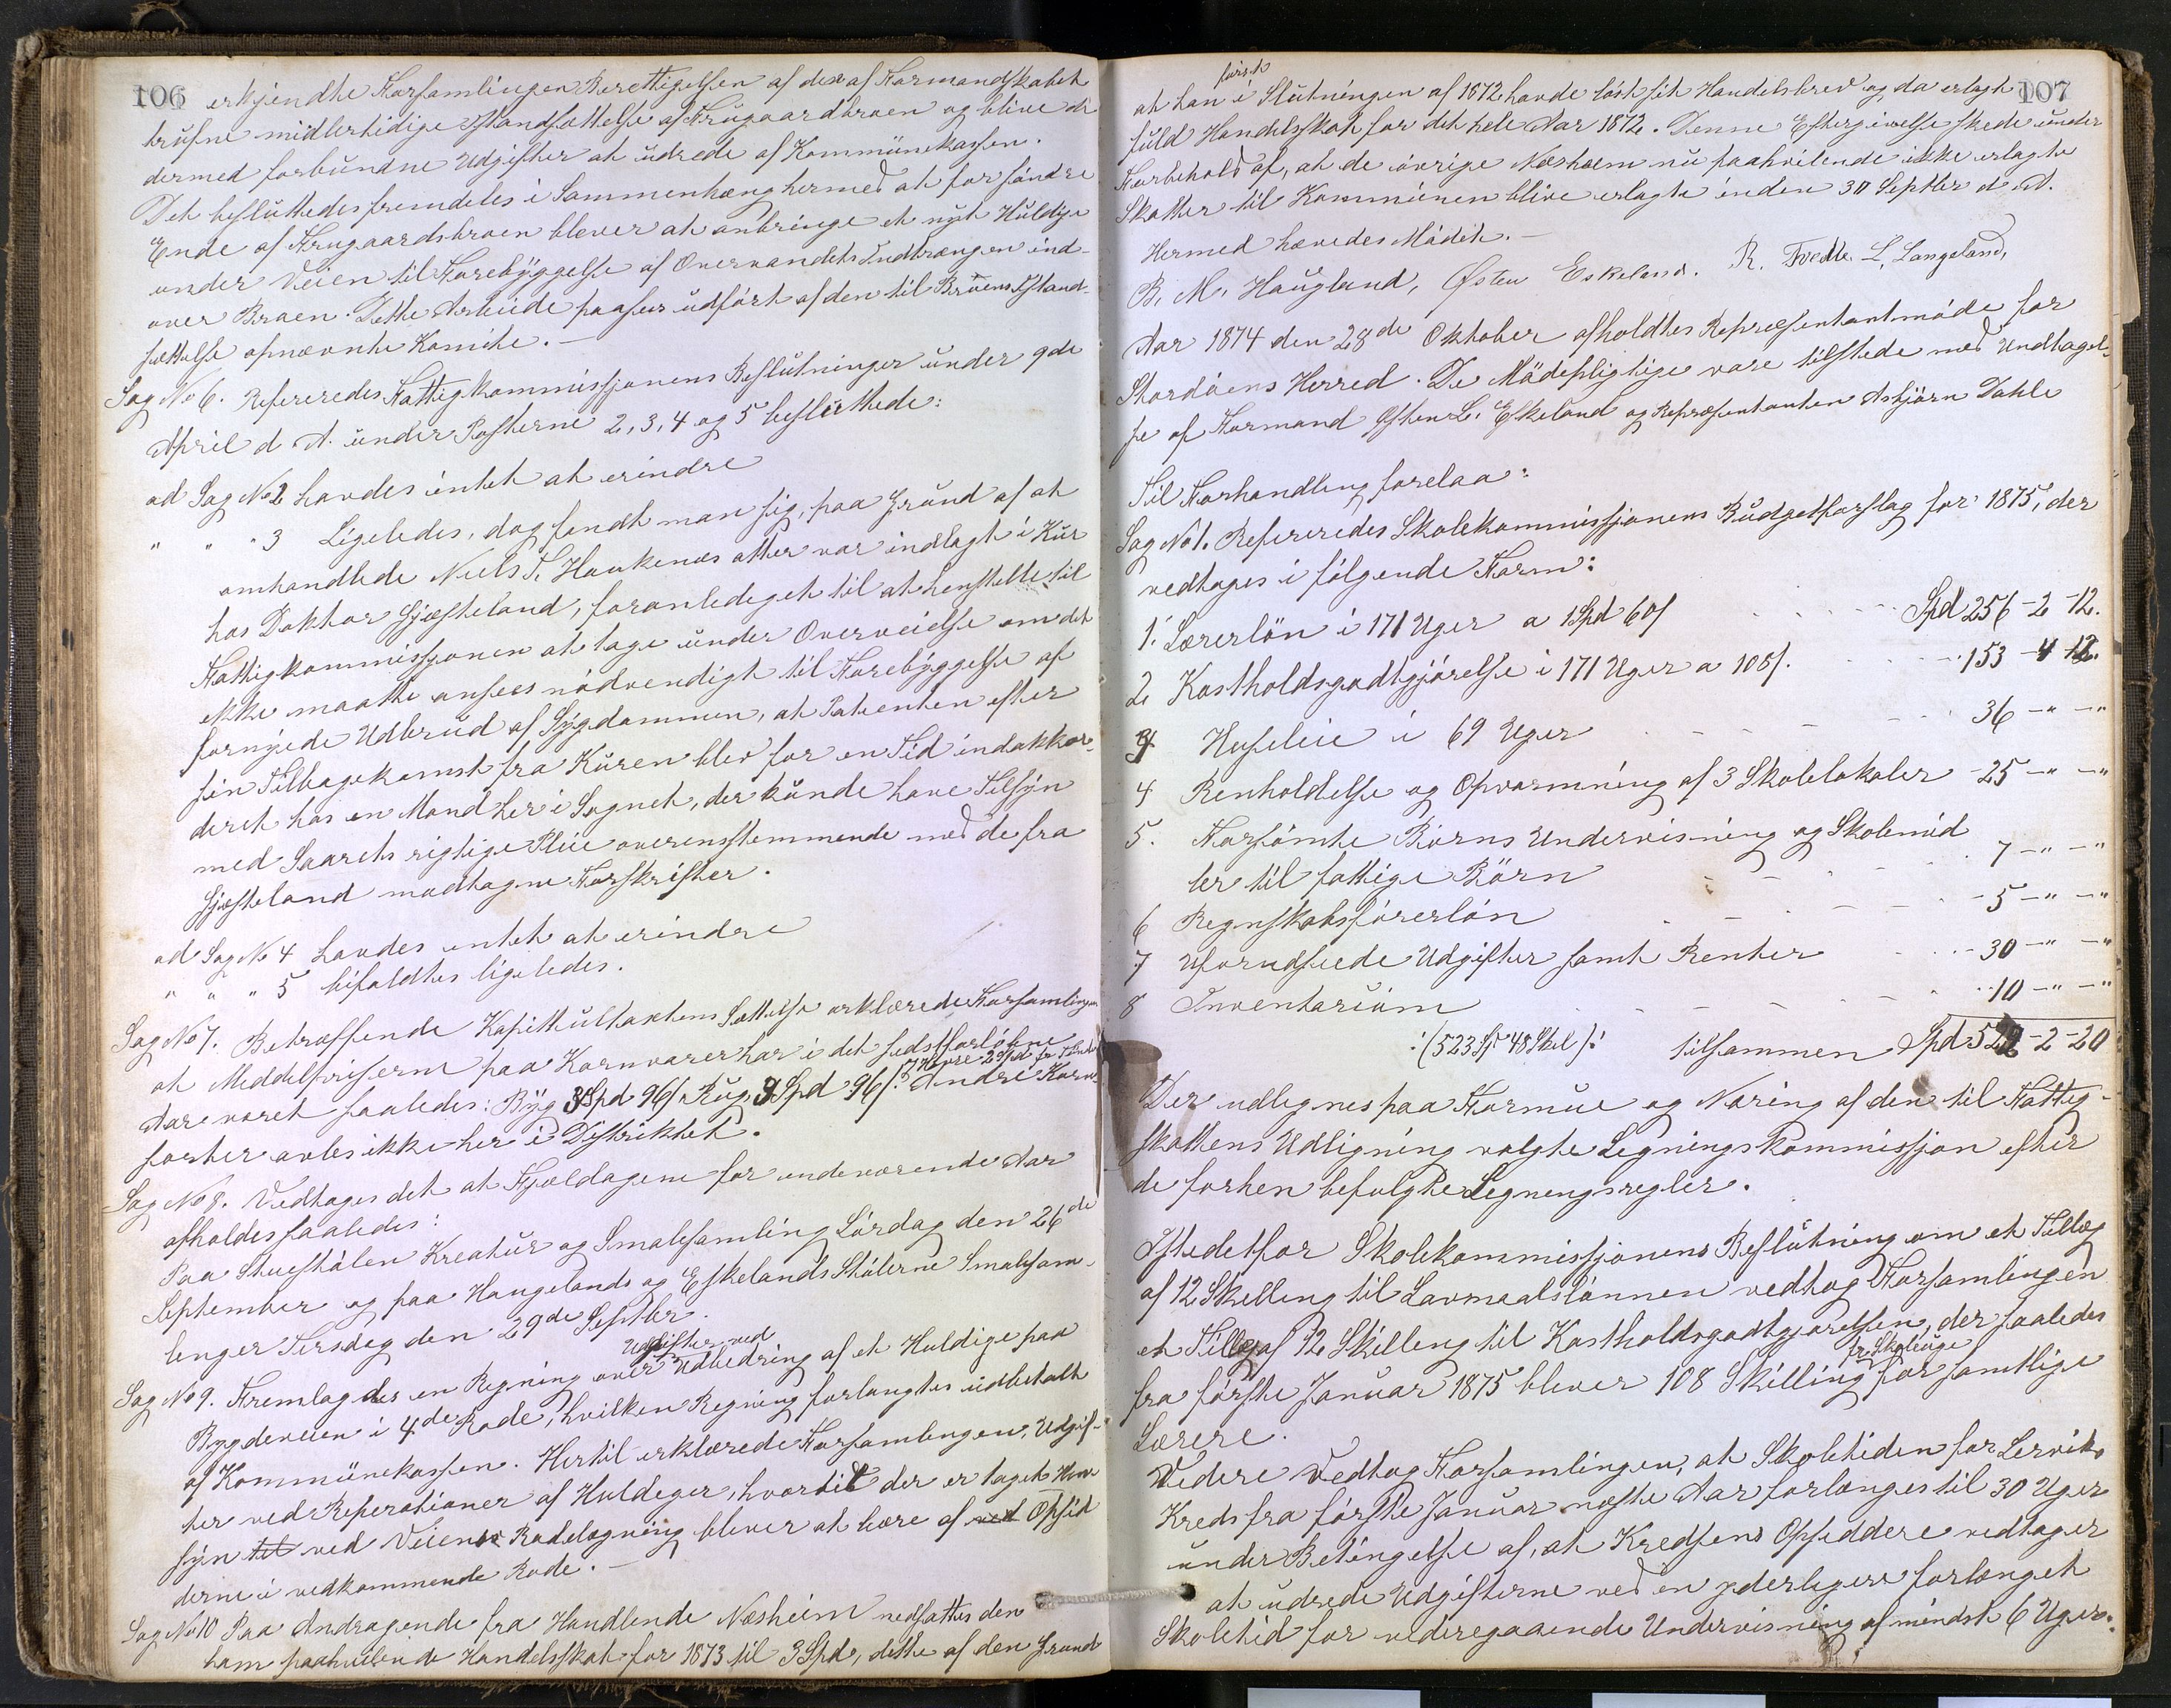 106
erkjendte Forsamlingen Berettigelsen af den af Formandskabet
trufne midlertidige Istandsættelse af Frugaardbroen og blive de
dermed forbundne Udgifter at udrede af Kommünekassen.
Det besluttedes fremdeles i Sammenhæng hermed at for søndre
Ende af Frugaardsbroen bliver at anbringe et nyt Huldige
under Veien til Forebyggelse af Overvandets Indtrængen ind-
over Broen. Dette Arbeide paasees udført af den til Broens Istand-
sættelse opnævnte Komite. —
Sag No 6. Refereredes Fattigkommissjonens Beslutninger under 9de
April d. A. under Posterne 2, 3, 4 og 5 besluttede:
ad Sag No 2 havdes intet at erindre
" " " 3 Ligeledes, dog fandt man sig, paa Grund af at
omhandlede Niels T. Haukenæs atter var indlagt i Kur
hos Doktor Gjæsteland, foranlediget til at henstille til
Fattigkommissjonen at tage under Overveielse om det
ikke maatte ansees nødvendigt til Forebyggelse af
fornyede Udbrud af Sygdommen, at Patienten efter
sin Tilbagekomst fra Kuren blev for en Tid indakkor-
deret hos en Mand her i Sognet, der kunde have Tilsyn
med Saarets rigtige Pleie overensstemmende med de fra
Gjæsteland modtagne Forskrifter.
ad Sag No 4 havdes intet at erindre
" " " 5 bifaldtes ligeledes.
Sag No 7. Betræffende Kapitultaxtens Sættelse erklærede Forsamlingen
at Meddelpriserne paa Kornvarer har i det sidstforløbne
Aar været saaledes: Byg 3 Spd 96 s, Rug 3 Spd 96 s. Havre 2 Spd pr Tønde Andre Korn-
sorter avles ikke her i Distriktet.
Sag No 8. Vedtoges det at Fjældagene for indeværende Aar
afholdes saaledes:
Paa Stuestølen Kreatur og Smalesamling Lørdag den 26de
September og paa Haugelands og Eskelands Stølerne Smalesam-
linger Tirsdag den 29de Septbr.
Sag No 9. Fremlagdes en Regning over Udgifter ved Udbedring af et Huldige paa
Bygdeveien i 4de Rode, hvilken Regning forlangtes udbetalt
af Kommünekassen. Hertil erklærede Forsamlingen, Udgif-
ter ved Reperationer af Huldiger, hvortil der er taget Hen-
syn til ved Veiens Rodelægning bliver at bære af ved Opsid
derne i vedkommende Rode. —
Sag No 10 Paa Andragende fra Handlende Næsheim nedsattes den
ham paahvilende Handelsskat for 1873 til 3 Spd, dette af den Grund
107
at han først i Slutningen af 1872 havde løst sit Handelsbrev og da erlagt
fuld Handelsskat for det hele Aar 1872. Denne Eftergivelse skede under
Forbehold af, at de øvrige Næsheim nu paahvilende ikke erlagte
Skatter til Kommünen blive erlagte inden 30 Septbr d. A.
Hermed hævedes Mødet. —
B. M. Haugland, Østen Eskeland. R. Tvedte L. Langeland,
Aar 1874 den 28de Oktober afholdtes Repræsentantmøde for
Stordøens Herred. De Mødepligtige vare tilstede med Undtagel-
se af Formand Østen L. Eskeland og Repræsentanten Asbjørn Dahle
Til Forhandling forelaa:
Sag No 1. Refereredes Skolekommissjonens Budgetforslag for 1875, der
vedtoges i følgende Form:
1. Lærerløn i 171 Uger a 1 Spd 60 s Spd 256 - 2 - 12.
2 Kostholdsgodtgjørelse i 171 Uger a 108 s. 153 - 4 - 12.
3 Husleie i 69 Uger 36 - " - "
4 Renholdelse og Opvarmning af 3 Skolelokaler 25 - " - "
5. Forsømte Børns Undervisning og Skolemid
ler til fattige Børn 7 - " - "
6 Regnskabsførerløn 5 - " - "
7 Uforudseede Udgifter samt Renter 30 - " - "
8 Inventarium 10 - " - "
:( 523 Sp 48 Skil ): Tilsammen Spd 522 - 2 - 20
Der udlignes paa Formue og Næring af den til Fattig-
skattens Udligning valgte Ligningskommissjon efter
de forhen befulgte Ligningsregler.
Istedetfor Skolekommissjonens Beslutning om et Tillæg
af 12 Skilling til Lavmaalslønnen vedtog Forsamlingen
et Tillæg af 12 Skilling til Kostholdsgodtgjørelsen, der saaledes
fra første Januar 1875 bliver 108 Skilling pr Skoleuge for samtlige
Lærere.
Videre vedtog Forsamlingen, at Skoletiden for Lerviks
Kreds fra første Januar næste Aar forlænges til 30 Uger
under Betingelse af, at Kredsens Opsiddere vedtager
at udrede Udgifterne ved en yderligere forlænget
Skoletid for videregaaende Undervisning af mindst 6 Uger.